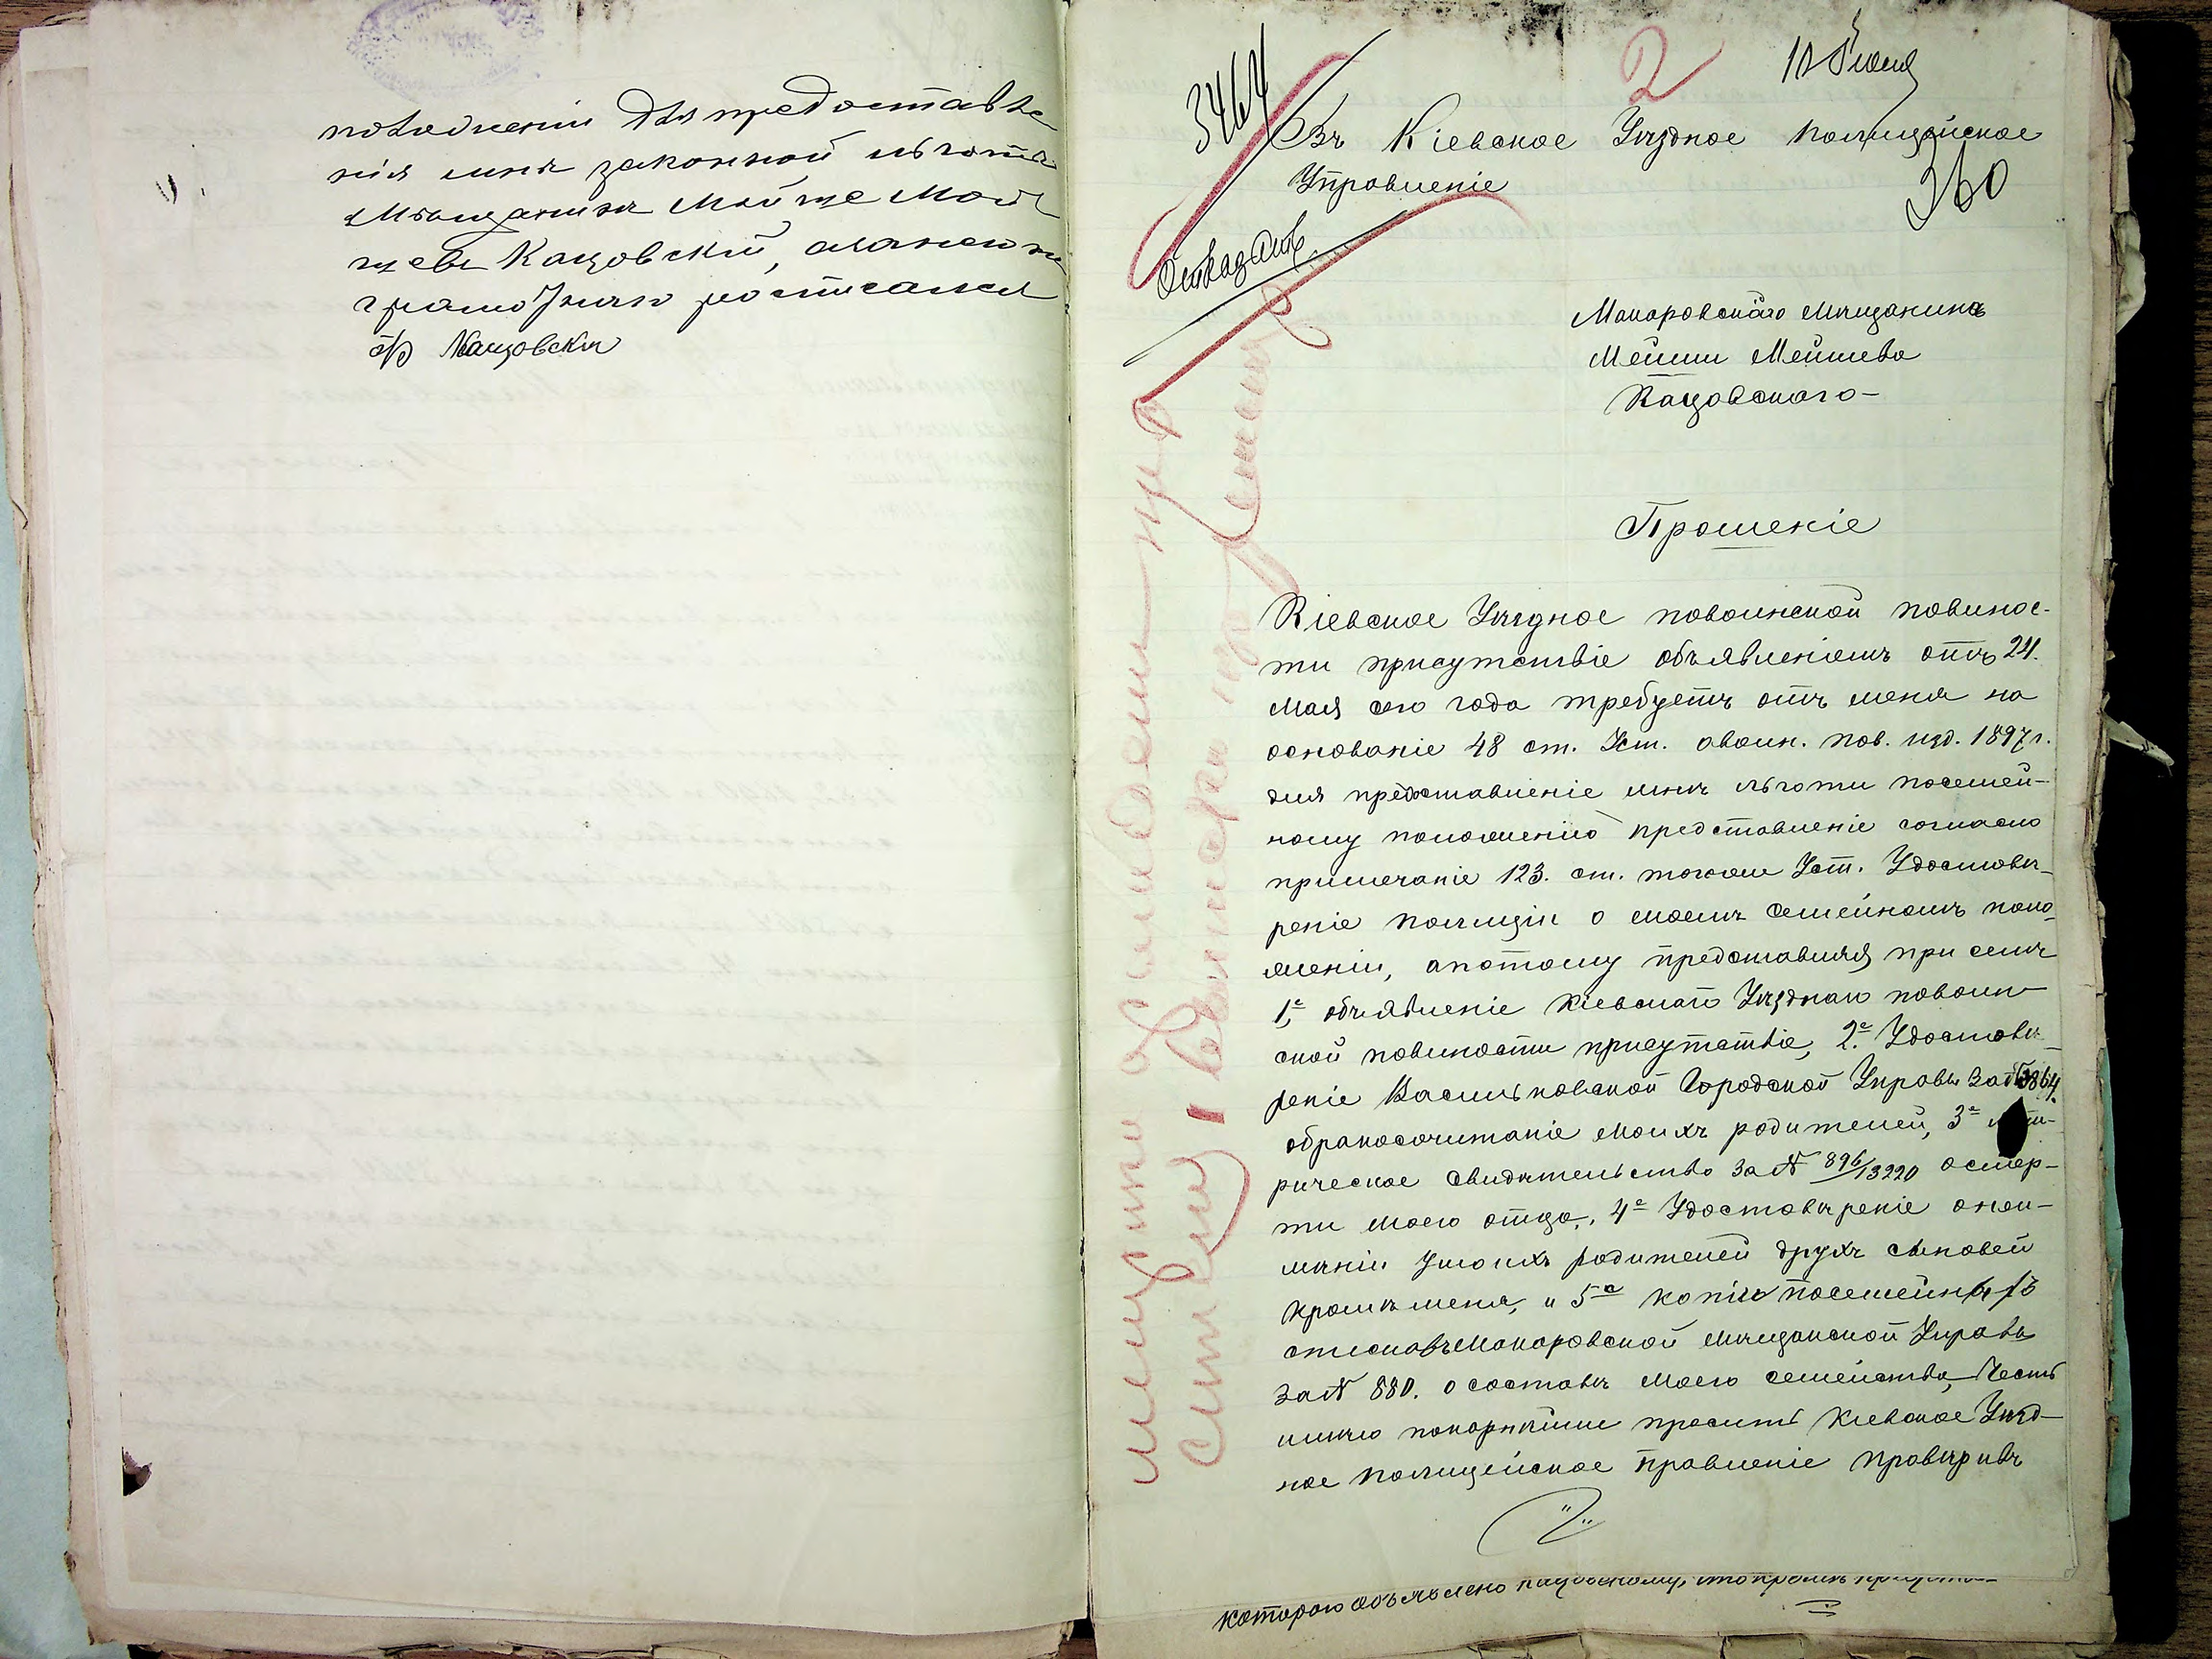 положении для предоставле-
нія мнѣ законной льготы
Мѣщанинъ Мойше Мой-
шевъ Кацовскій, а за него не-
грамотнаго росписался
Кацовскій
3464
2
10 Іюня
Въ Кіевское Уѣздное Полицейское
Управленіе
360
Макаровскаго мѣщанина
Мейши Мейшева
Кацовскаго-
Прошеніе
Кіевское Уѣздное повоинской повинос-
ти присутствіе объявленіемъ отъ 24.
Мая сего года требуетъ отъ меня на
основаніе 48 ст. Уст. овоин. пов. изд. 1897 г.
для предоставленіе мнѣ льготи посемей-
ному положенію представленіе согласно
примечаніе 123. ст. тогоже Уст. Удостовѣ-
реніе полиціи о моемъ семейномъ поло-
женіи, апотому представляя при семъ
1е, объявленіе Кіевскаго Уѣзднаго повоин-
ской повиности присутствіе, 2е. Удостовѣ-
реніе Васильковской Городской Управы За№
обракосочитаніе моихъ родителей, 3е
рическое свидѣтельство За № 896/13220 осмер-
ти моего отца, 4е Удостовѣреніе онеи-
мѣніи умоихъ родителей другхъ сыновей
кромѣ меня, и 5е копію посемейныхъ
списковъ Макаровской мѣщанской Управы
За № 880. о составѣ моего семейства, Честь
имѣю покорнѣйше просить Кіевское Уѣзд-
ное Полицейское Правленіе провѣривъ
котораго объявлено Кацовскому, что кромѣ